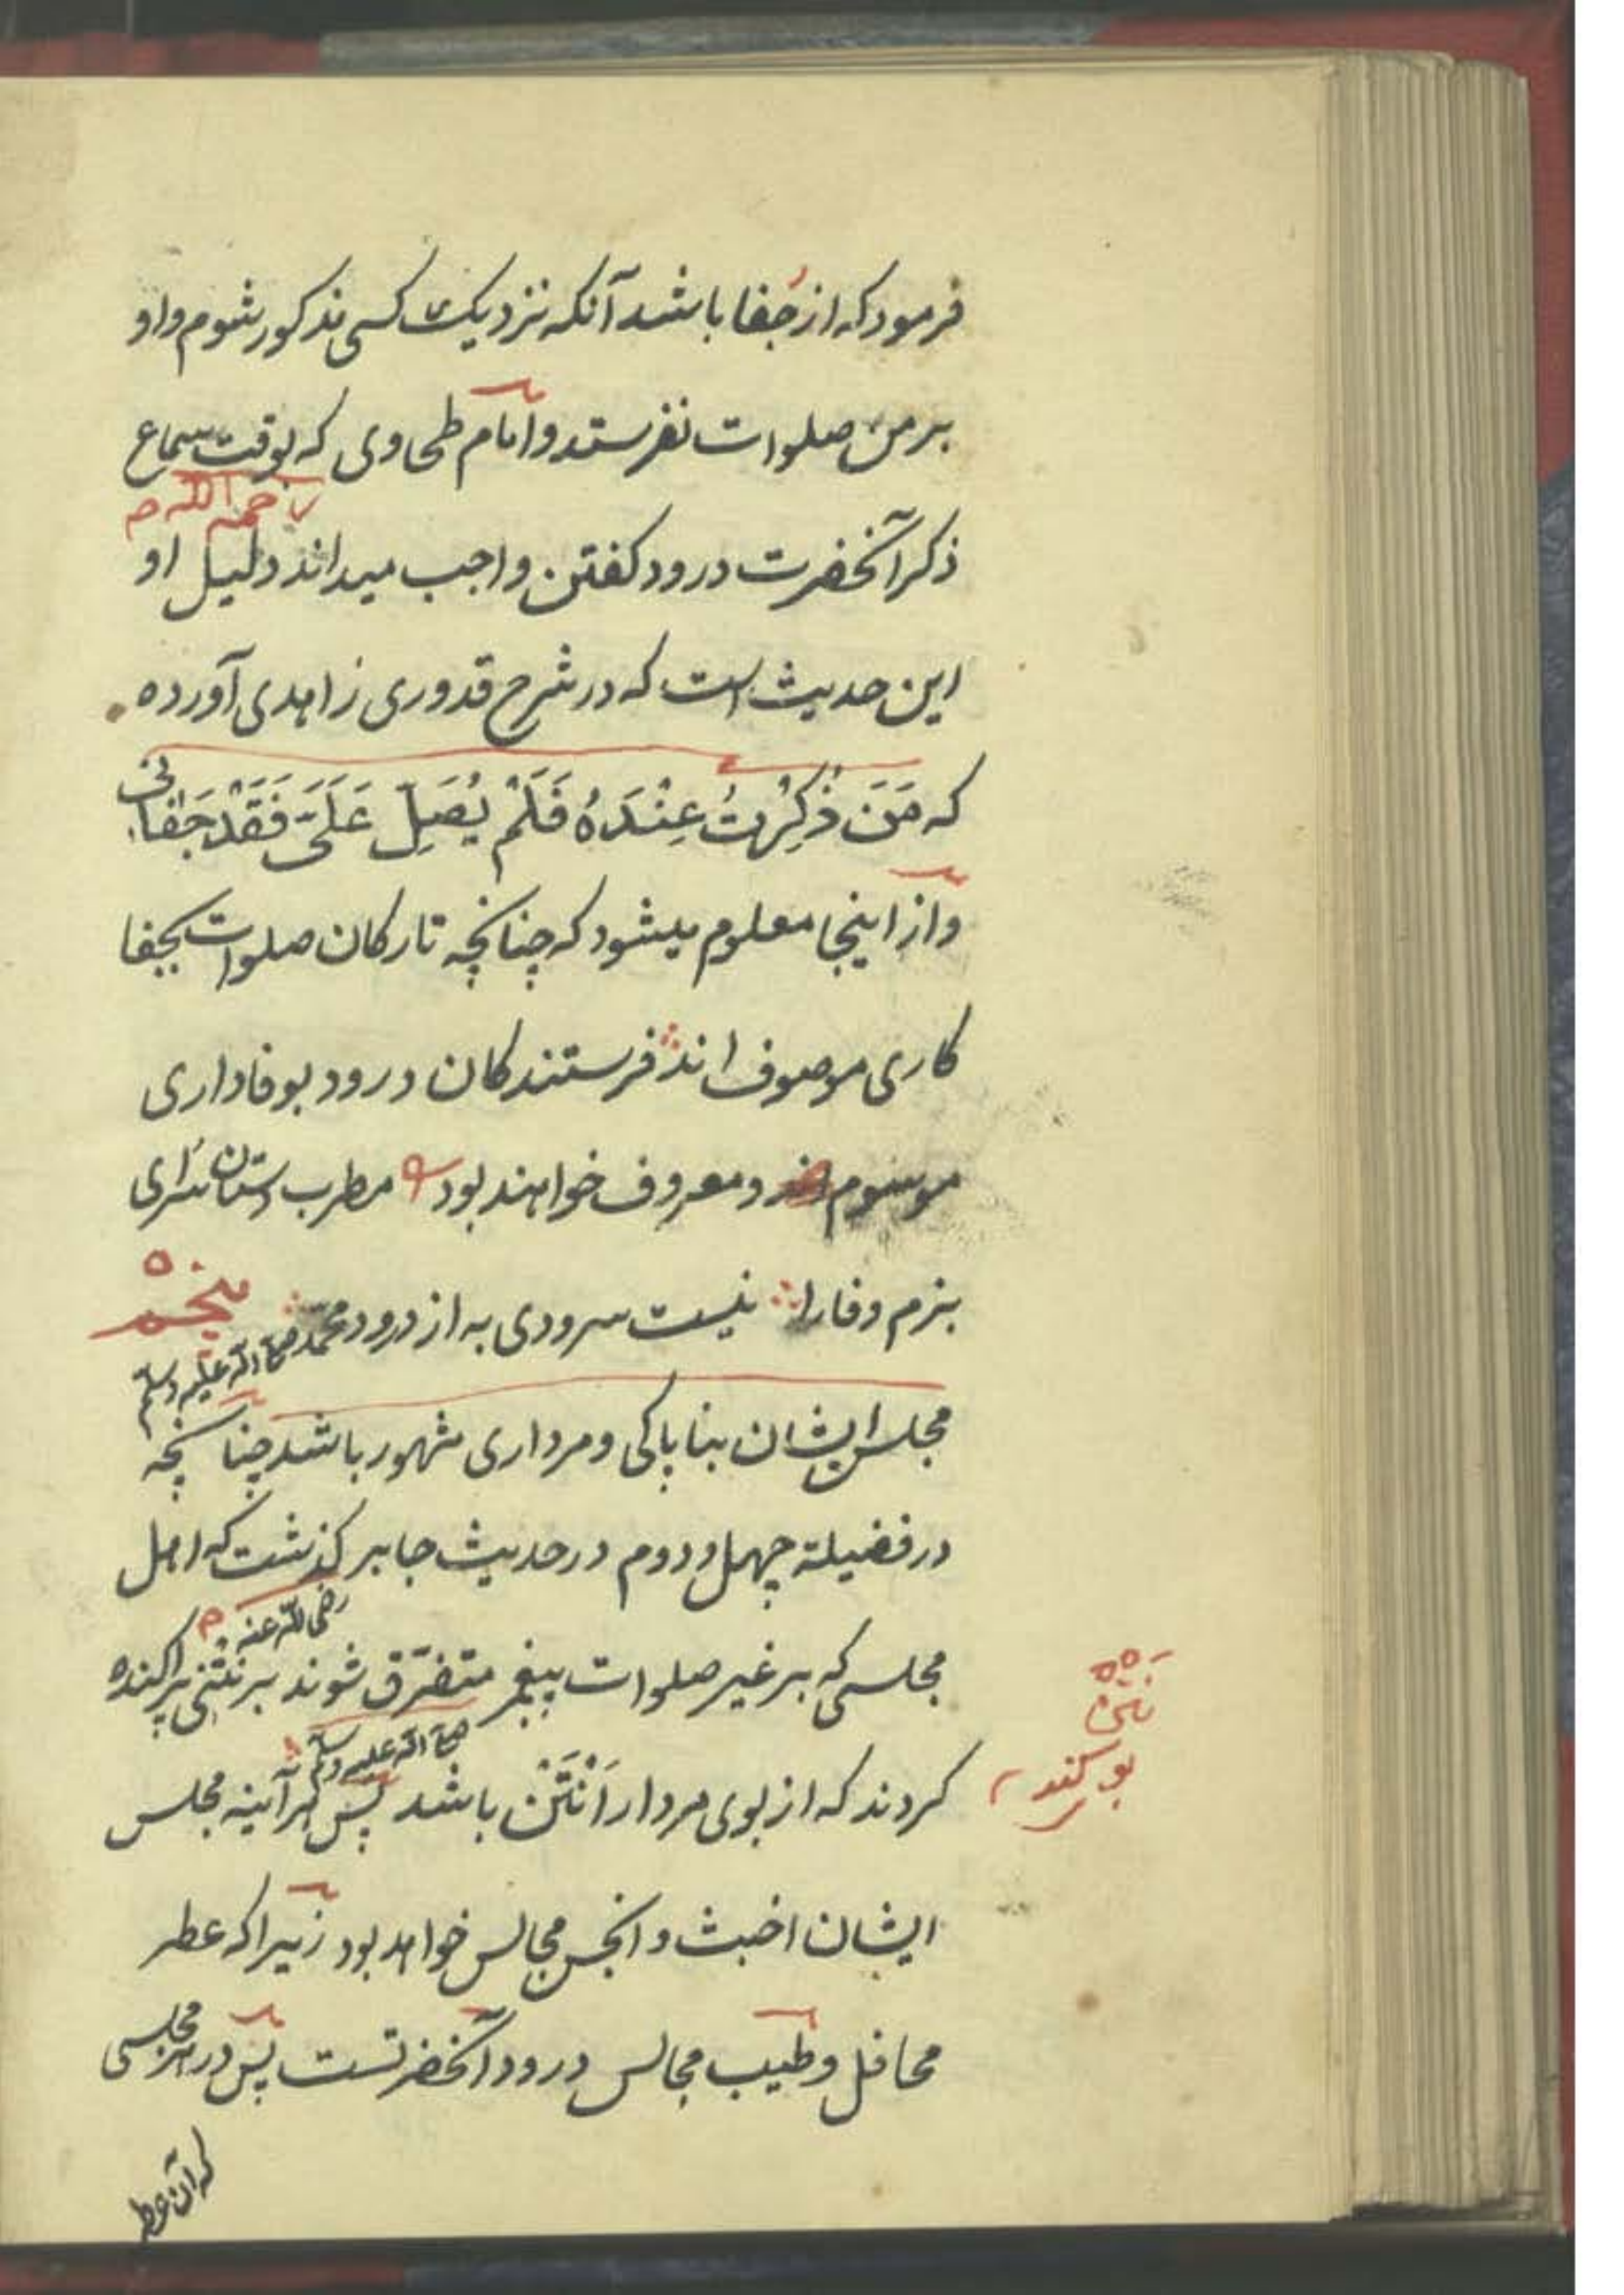 فرمود که از جفا باشد آنکه نزدیک کسی مذکور شوم و او
بر من صلوات نفرستد و امام طحاوی که بوقت سماع
رحمه الله م
ذکر آنحضرت درود کفتن واجب میداند دلیل او
این حدیث است که در شرح قدوری زاهدی آورده
که مَنَ ذُکِرْتُ عِنْدَهُ فَلَمْ یُصَلِّ عَلَیَّ فَقَدْ جَفَانی
و از اینجا معلوم میشود که چنانچه تارکان صلوات بجفا
کاری موصوف اند فرستندکان درود بوفاداری
موسوم اند و معروف خواهند بود مطرب دستان سرای
بزم وفا را نیست سرودی به از درود محمد صلی الله علیه وسلم
پنجم ٥
مجلس ایشان بناپاکی و مرداری مشهور باشد چنانچه
در فضیلة چهل و دوم در حدیث جابر کذشت که اهل
رضی الله عنه م
مجلسی که بر غیر صلوات پیغمبر متفرّق شوند بر نَتْنی پراکنده
صلی الله علیه وسلم
کردند که از بوی مردار اَنْتَنْ باشد پس هر آینه مجلس
نَتْن
بو کنده
ایشان اخبث و انجس مجالس خواهد بود زیرا که عطر
محافل و طیب مجالس درود آنحضرتست پس در هر مجلسی
که آن عطر